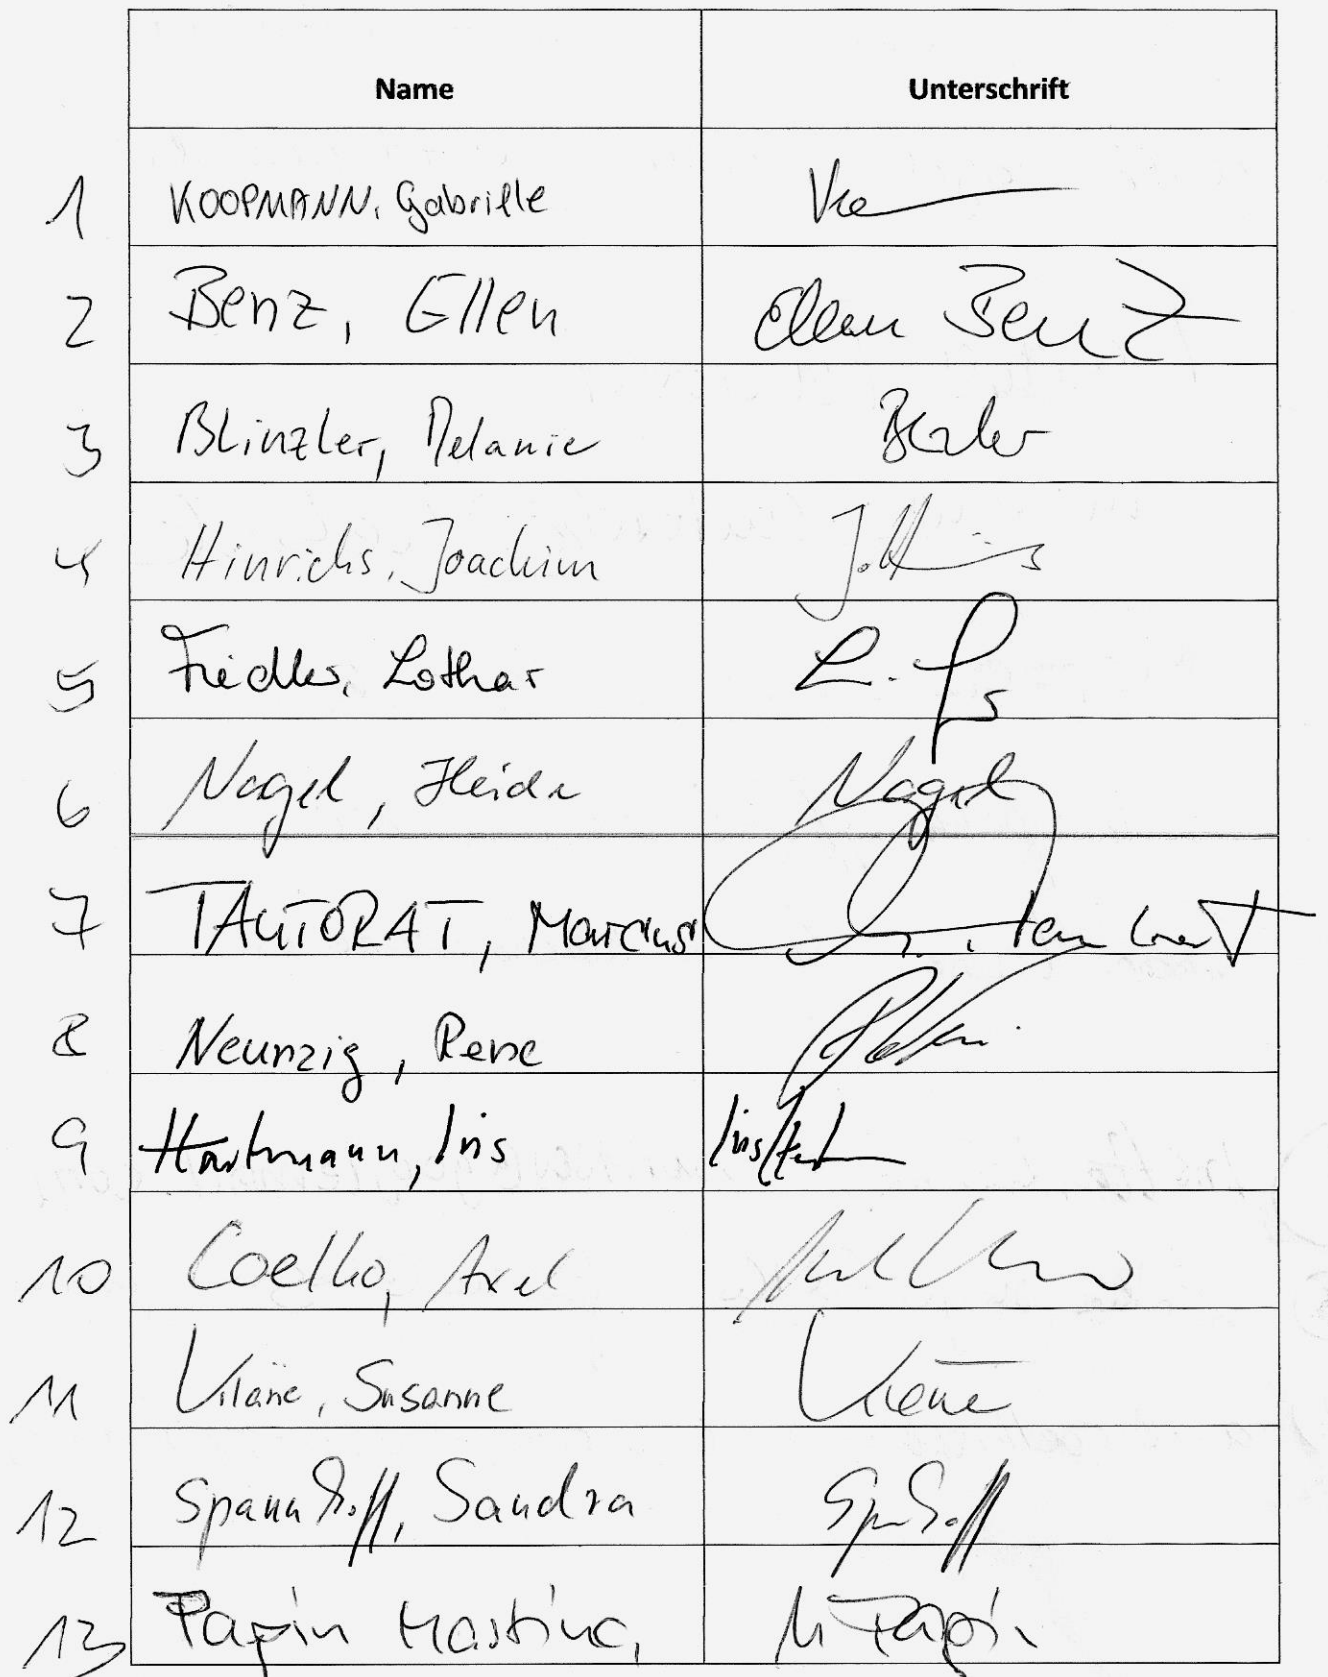 Name Unterschrift
1 KOOPMANN, Gabrielle
2 Benz, Ellen Ellen Benz
3 Blinzler, Melanie
4 Hinrichs, Joachim
5 Fiedler, Lothar
6 Nagel, Heide Nagel
7 TAUTORAT, Marcus
8 Neunzig, Rene
9 Hartmann, Iris Iris
10 Coelho, Axel
11 Susanne
12 Spannhoff, Sandra
13 Papin Martina, M Papin